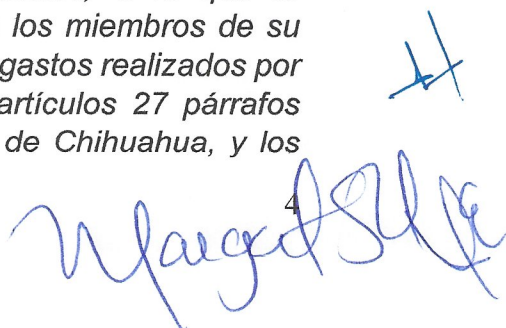 los miembros de su
gastos realizados por
artículos 27 párrafos
de Chihuahua, y los
4